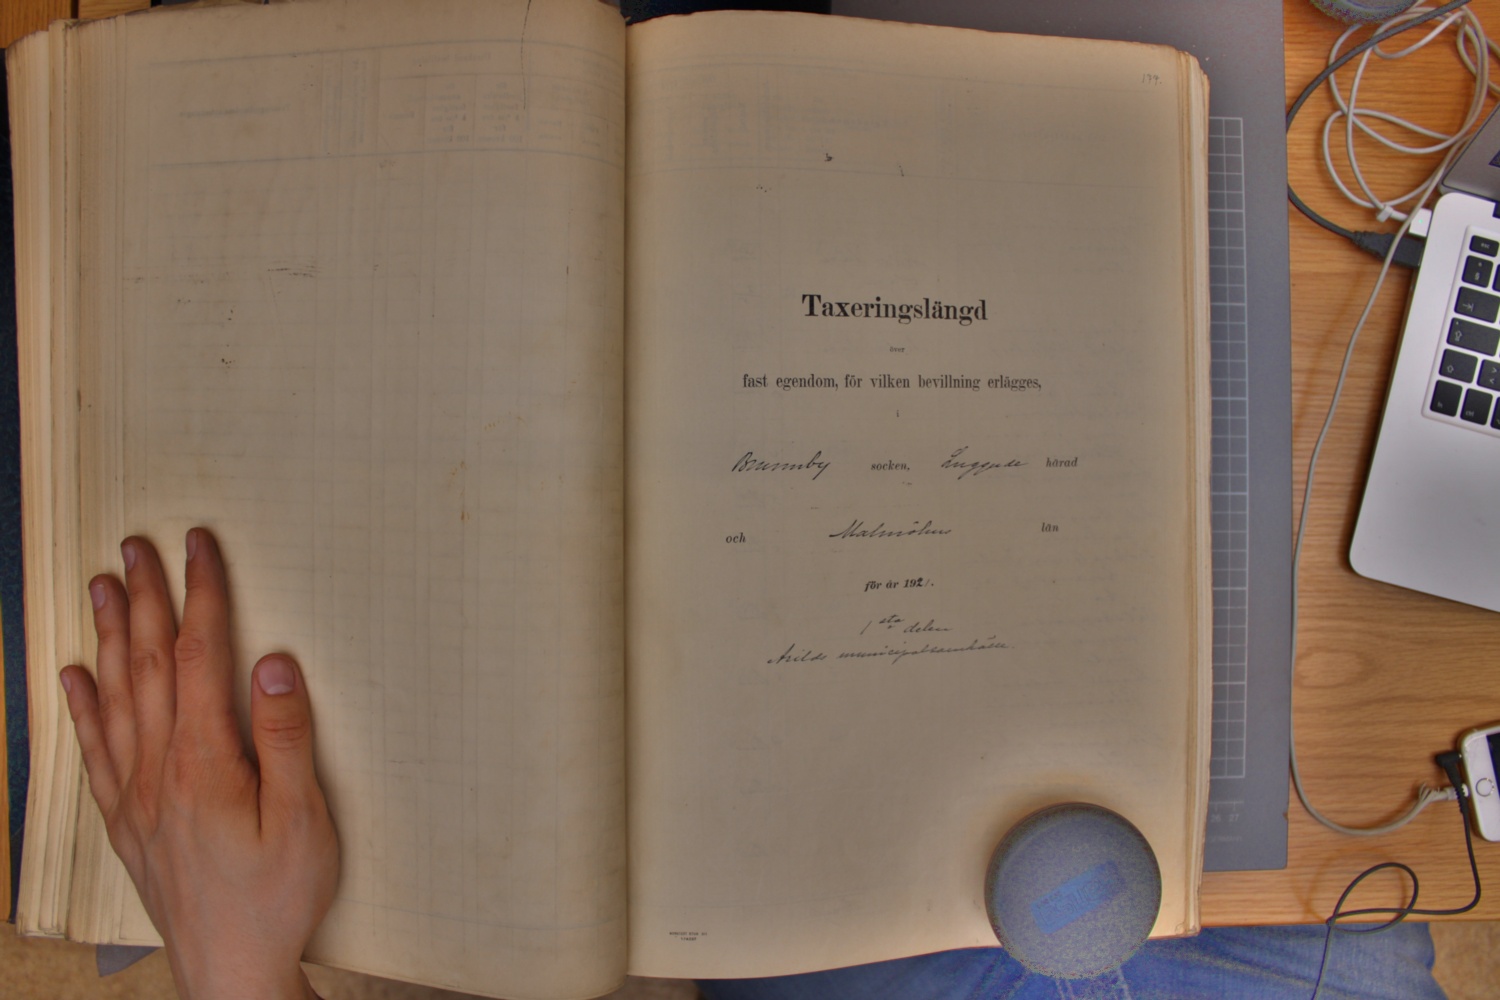 179.
Taxeringslängd
över
fast egendom, för vilken bevillning erlägges,
i
Brunnby socken, Luggude härad
och Malmöhus län
för år 1921.
1 sta delen
Arilds municipalsamhälle.